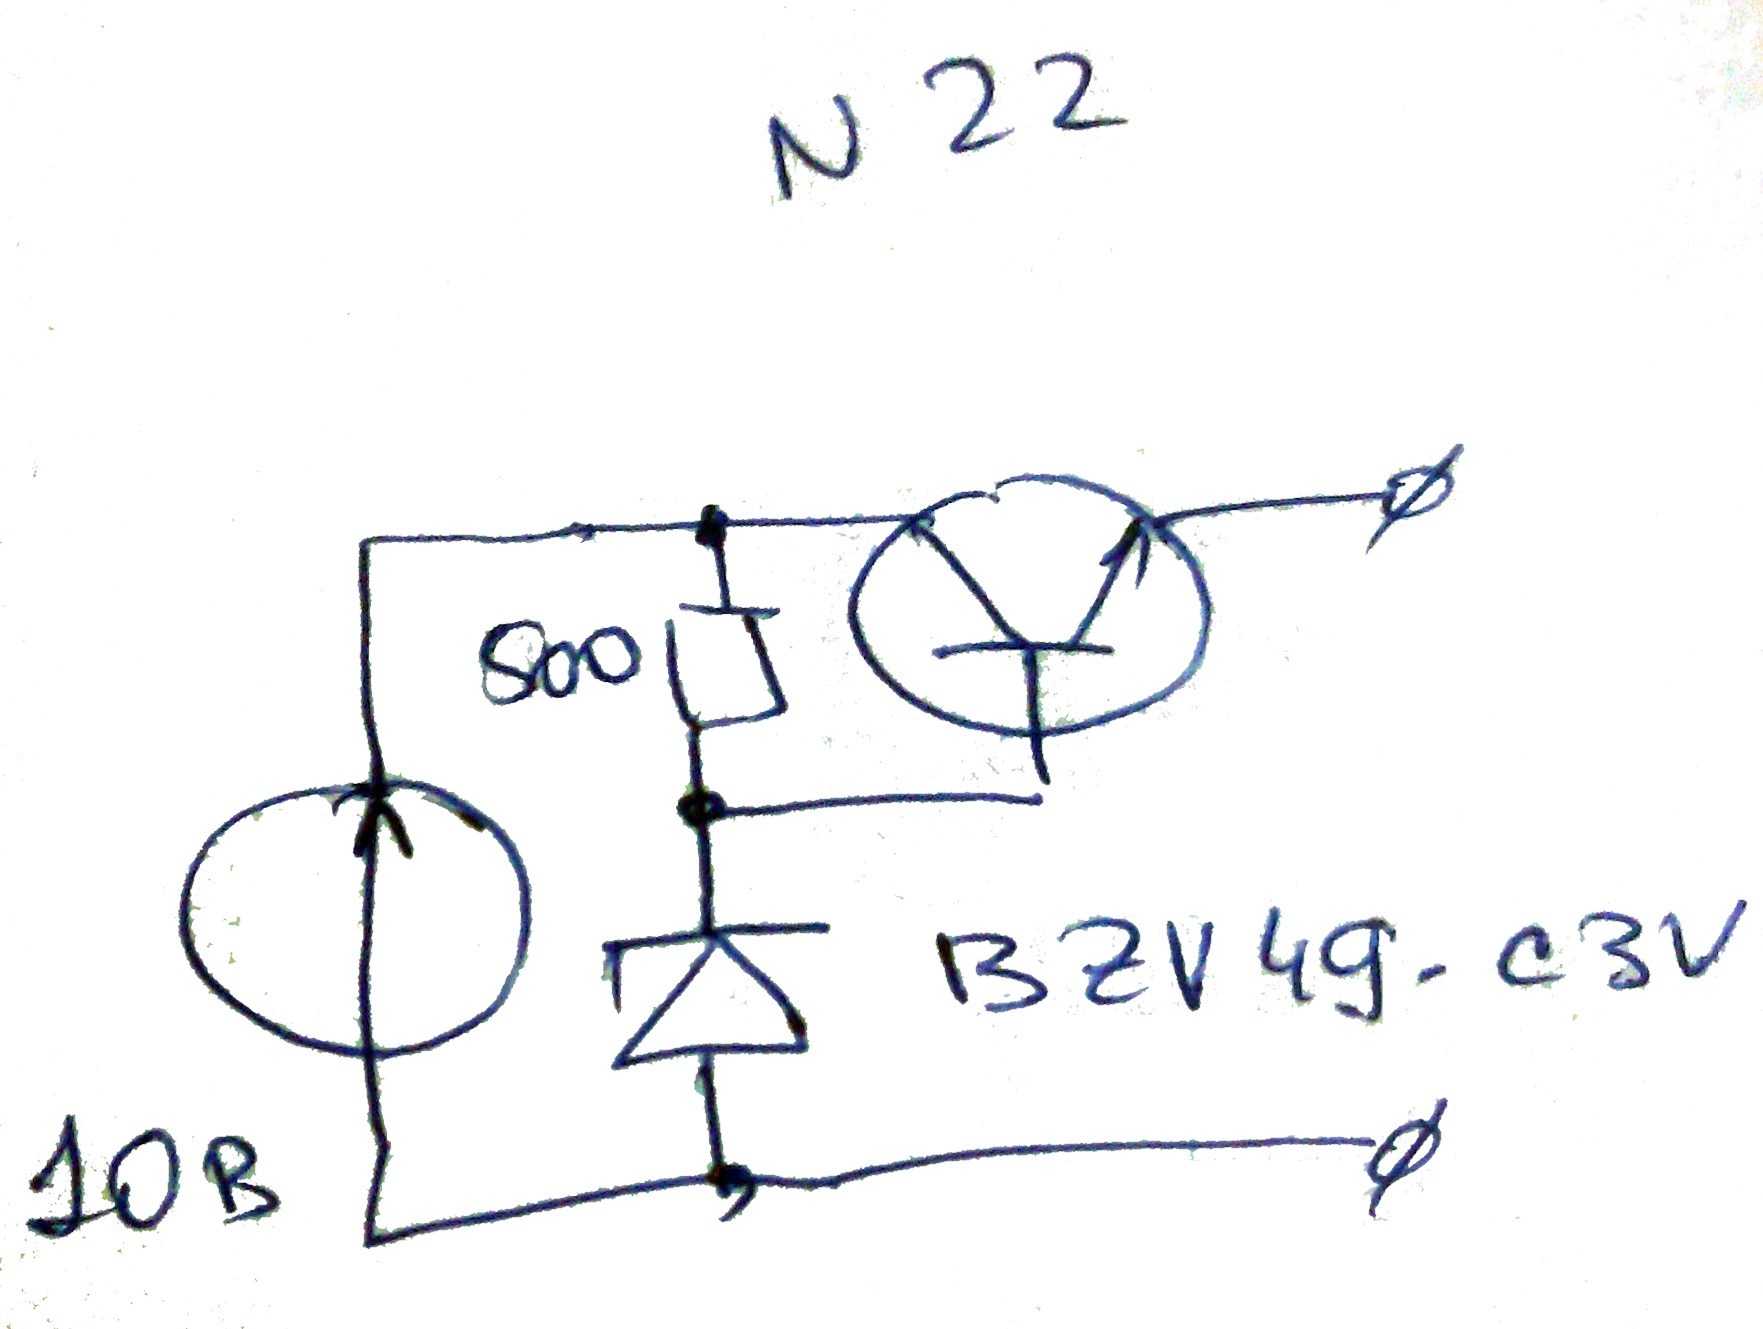 N 22
500
BZV49-C3V
10В